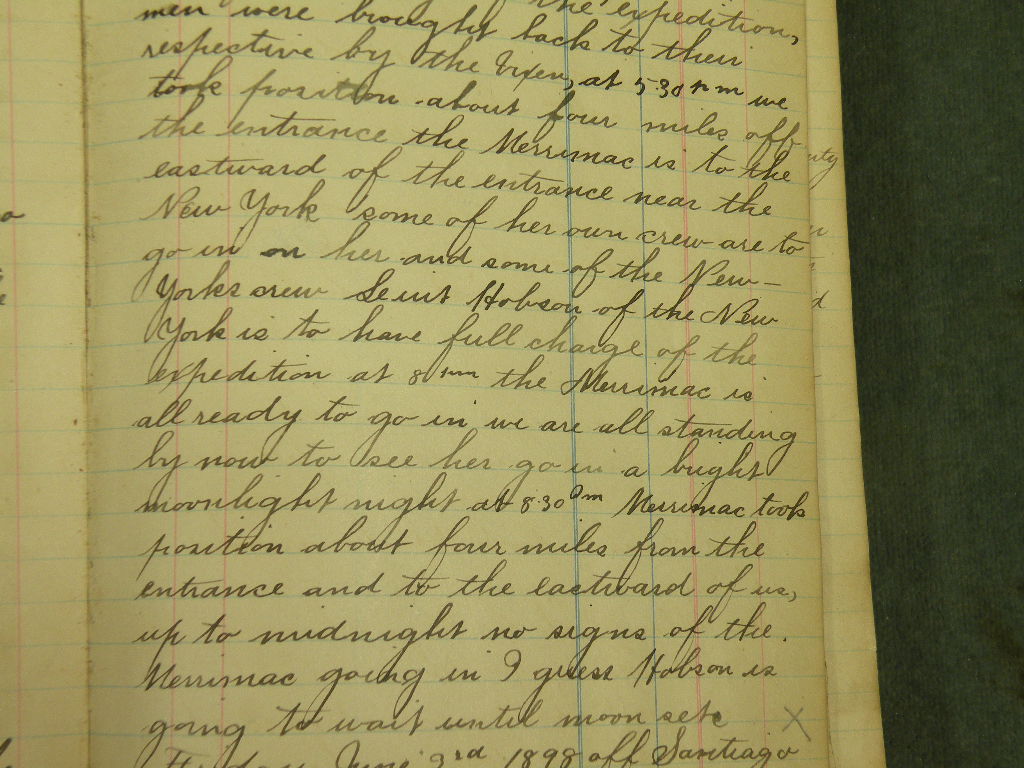 the expedition,
men were brought back to their
respective by the Vixen, at 5.30 pm we
took position about four miles off
the entrance the Merrimac is to the
eastward of the entrance near the
New York some of her own crew are to
go in on her and some of the New-
Yorks crew Leiut Hobson of the New
York is to have full charge of the
expedition at 8 pm the Merrimac is
all ready to go in we are all standing
by now to see her go in a bright
moonlight night at 8.30 pm Merrimac took
position about four miles from the
entrance and to the eastward of us,
up to midnight no signs of the.
Merrimac going in I guess Hobson is
going to wait until moon sets X
Friday June 3rd 1898 off Santiago